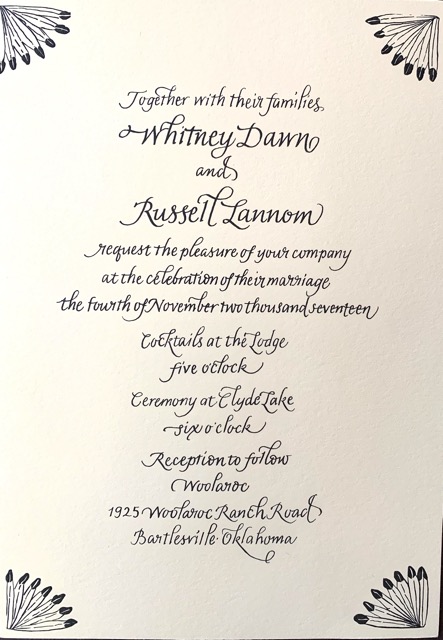 Together with their families
Whitney Dawn
and
Russell Lannom
request the pleasure of your company
at the celebration of their marriage
the fourth of November two thousand seventeen
Cocktails at the Lodge
five o'clock
Ceremony at Clyde Lake
six o'clock
Reception to follow
Woolaroc
1925 Woolaroc Ranch Road
Bartlesville · Oklahoma